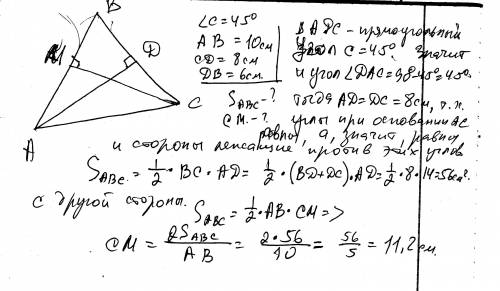 B
M
D
C
A
∠C = 45°
AB = 10см
CD = 8см
DB = 6см.
S_ABC - ?
CM - ?
∆ ADC - прямоугольный
Угол C = 45°. значит
и угол ∠DAC = 90°-45° = 45°.
тогда AD = DC = 8см, т.к.
углы при основании AC
равны, а, значит, равны
и стороны лежащие против этих углов
S_ABC = 1/2 · BC · AD = 1/2 · (BD+DC) · AD = 1/2 · 8 · 14 = 56см².
С другой стороны.
S_ABC = 1/2 · AB · CM =>
CM = 2S_ABC/AB = 2·56/10 = 56/5 = 11,2см.